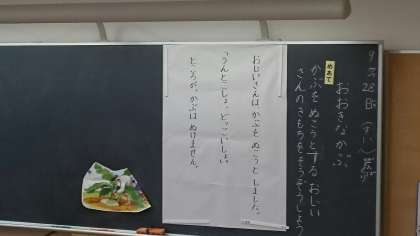 9月28日(すい)
おおきなかぶ
めあて
かぶをぬこうとするおじい
さんのきもちをそうぞうしよう
おじいさんは、かぶを ぬこうと しました。
「うんとこしょ、どっこいしょ。」
ところが、かぶは ぬけません。